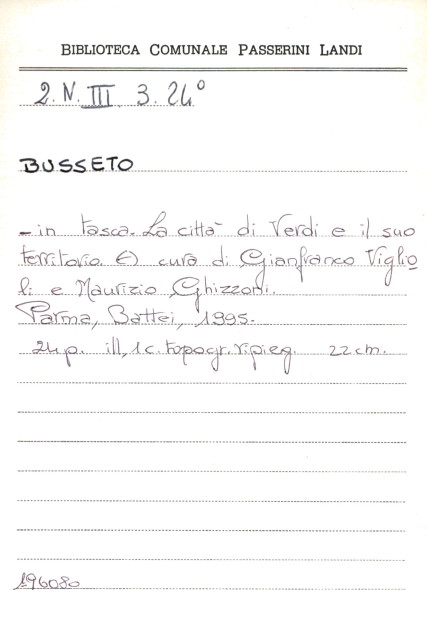 BIBLIOTECA COMUNALE PASSERINI LANDI
2. N. III. 3. 24°
BUSSETO
- in tasca. La città di Verdi e il suo
territorio. A cura di Gianfranco Viglio
li e Maurizio Ghizzoni.
Parma, Battei, 1995.
24 p. ill, 1 c. topogr. ripieg. 22 cm.
196080